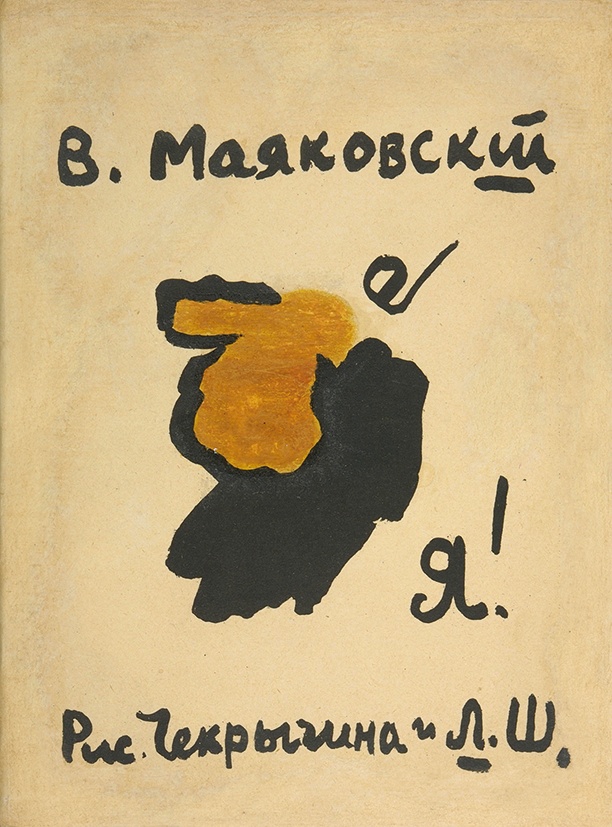 В. Маяковскій
Я!
Рис. Чекрыгина и Л. Ш.